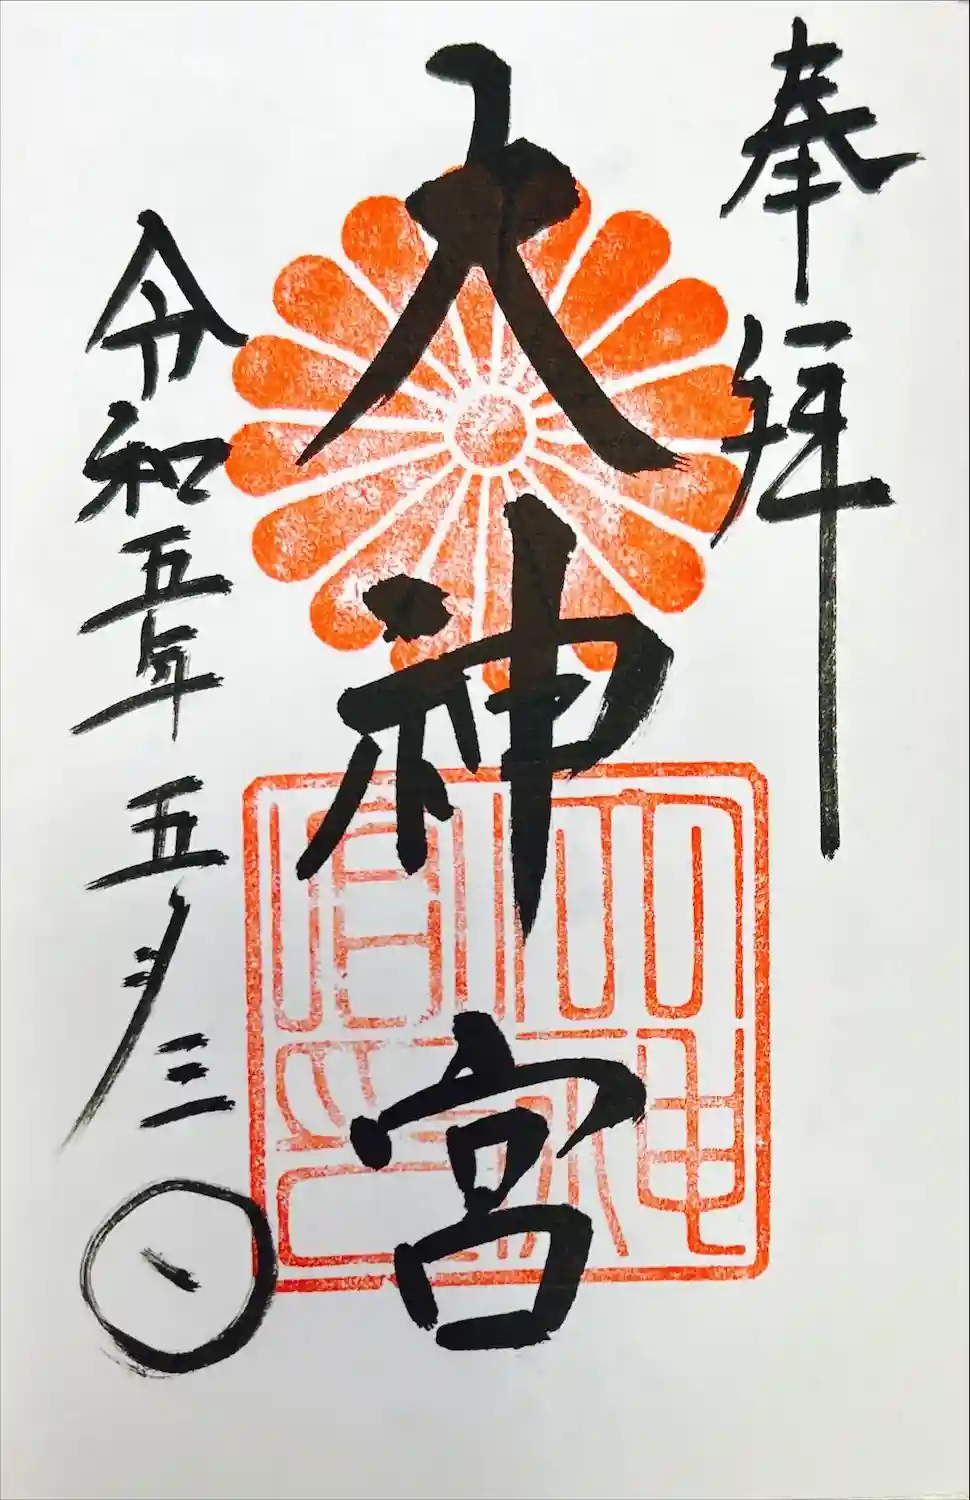 奉拝
大神宮
令和五年五月三日